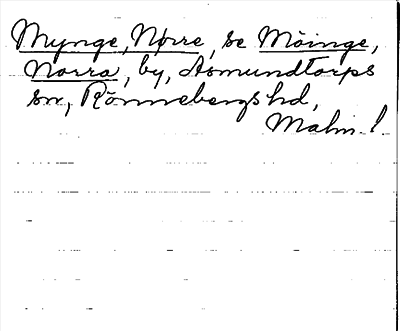 Mynge, Nørre, se Möinge,
Norra, by, Asmundtorps
sn, Rönnebergs hd,
Malm. l.